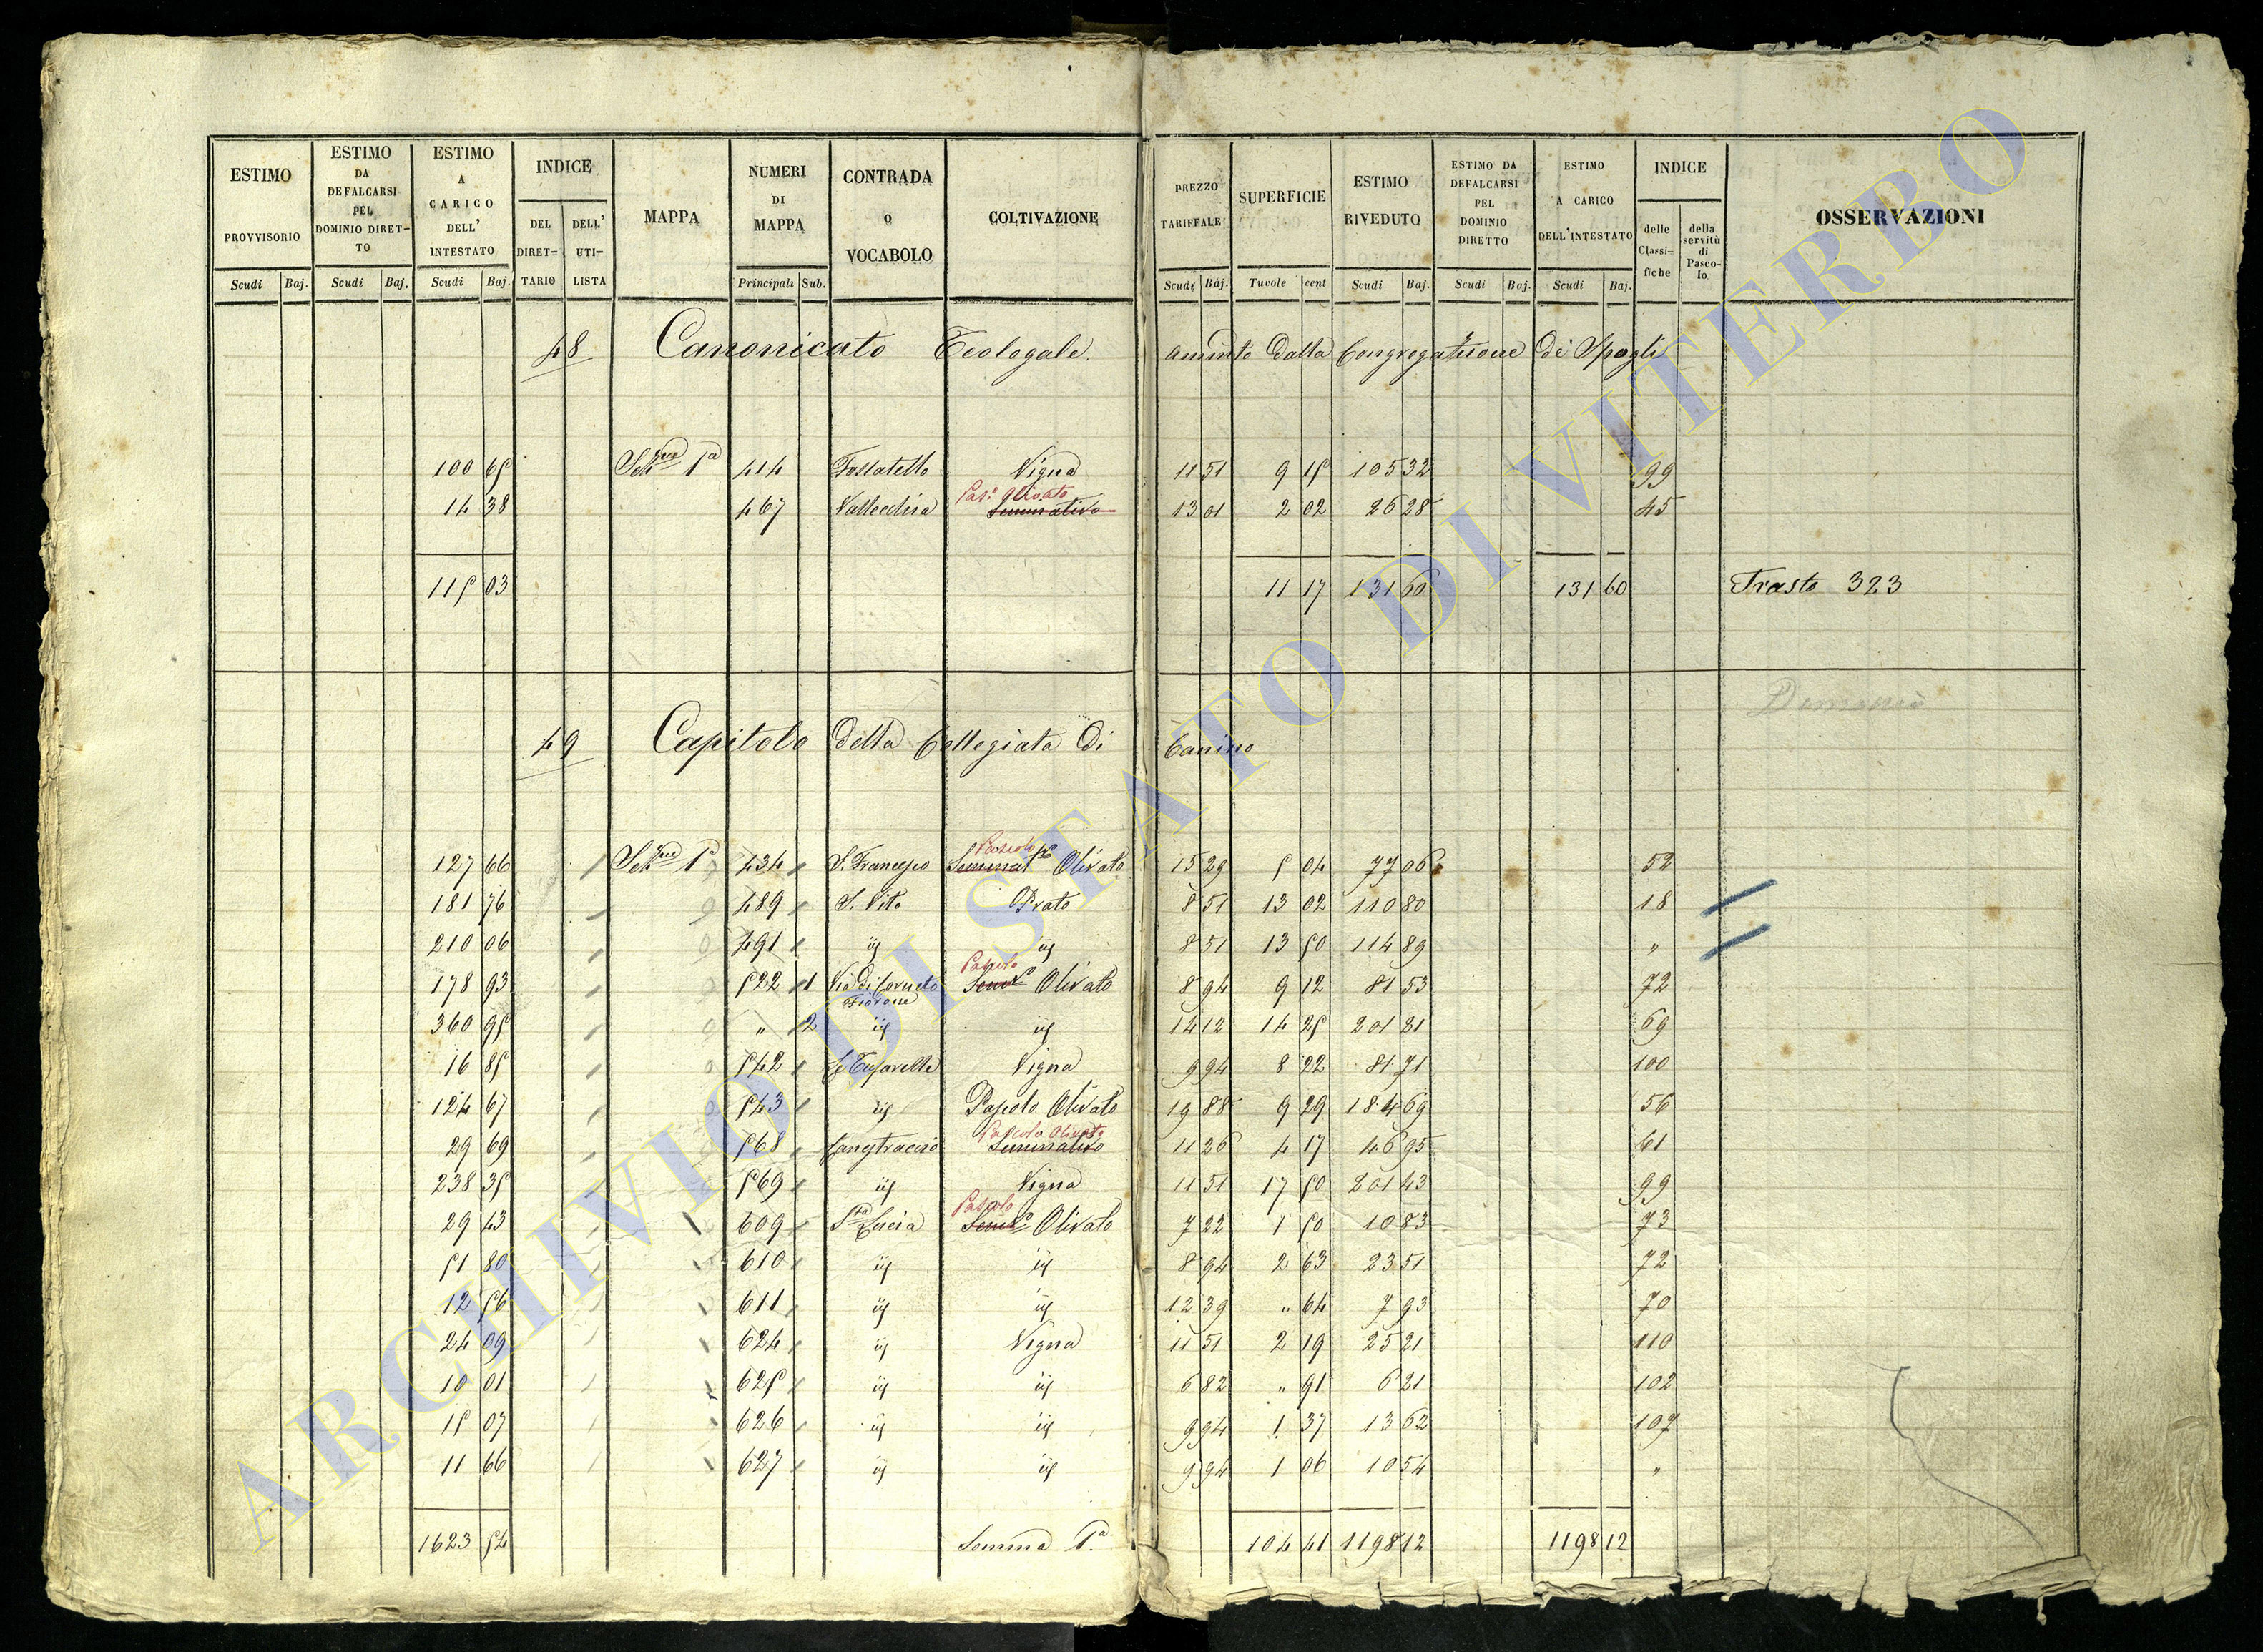 ESTIMO PROVVISORIO
ESTIMO DA DEFALCARSI PEL DOMINIO DIRET- TO
ESTIMO A CARICO DELL' INTESTATO
INDICE
DEL DIRET- TARIO
DELL' UTI- LISTA
MAPPA
NUMERI DI MAPPA
CONTRADA o VOCABOLO
COLTIVAZIONE
PREZZO TARIFFALE
SUPERFICIE
ESTIMO RIVEDUTO
ESTIMO DA DEFALCARSI PEL DOMINIO DIRETTO
ESTIMO A CARICO DELL'INTESTATO
INDICE
delle Classi- fiche
della servitù di Pasco- lo
OSSERVAZIONI
Scudi Baj. Scudi Baj. Scudi Baj. Principali Sub. Scudi Baj. Tavole cent Scudi Baj. Scudi Baj. Scudi Baj.
48 Canonicato Teologale. dalla Congregazione di
100 65 Sez.ne 1a 414 Fossatello Vigna 11 51 9 15 105 32 99
Pas.o Olivato
14 38 467 Seminativo 13 01 2 02 26 28 45
115 03 11 17 131 60 131 60 Trasto 323
49 Capitolo della Collegiata di Canino
Pascolo
127 66 Sez.ne 1a 434 S. Francesco Seminat.o Olivato 15 29 5 04 77 06 52
181 76 489 S. Vito Prato 8 51 13 02 110 80 18
210 06 491 ij ij 8 51 13 50 114 89 "
Pascolo
178 93 522 1 Via di Corneto Sem.o Olivato 8 94 9 12 81 53 72
360 95 " 2 ij ij 14 12 14 25 201 21 69
16 85 542 Vigna 9 94 8 22 81 71 100
124 67 543 ij Pascolo Olivato 19 88 9 29 184 69 56
Pascolo Olivato
29 69 568 Seminativo 11 26 4 17 46 95 61
238 35 569 ij Vigna 11 51 17 50 201 43 99
Pascolo
29 43 609 S.ta Lucia Sem.o Olivato 7 22 1 50 10 83 73
51 80 610 ij ij 8 94 2 63 23 51 72
12 56 611 ij ij 12 39 " 64 7 93 70
24 09 624 ij Vigna 11 51 2 19 25 21 110
10 01 625 ij ij 6 82 " 91 6 21 102
15 07 626 ij ij 9 94 1 37 13 62 107
11 66 627 ij ij 9 94 1 06 10 54 "
1623 54 Somma 1a. 104 41 1198 12 1198 12
ARCHIVIO DI STATO DI VITERBO